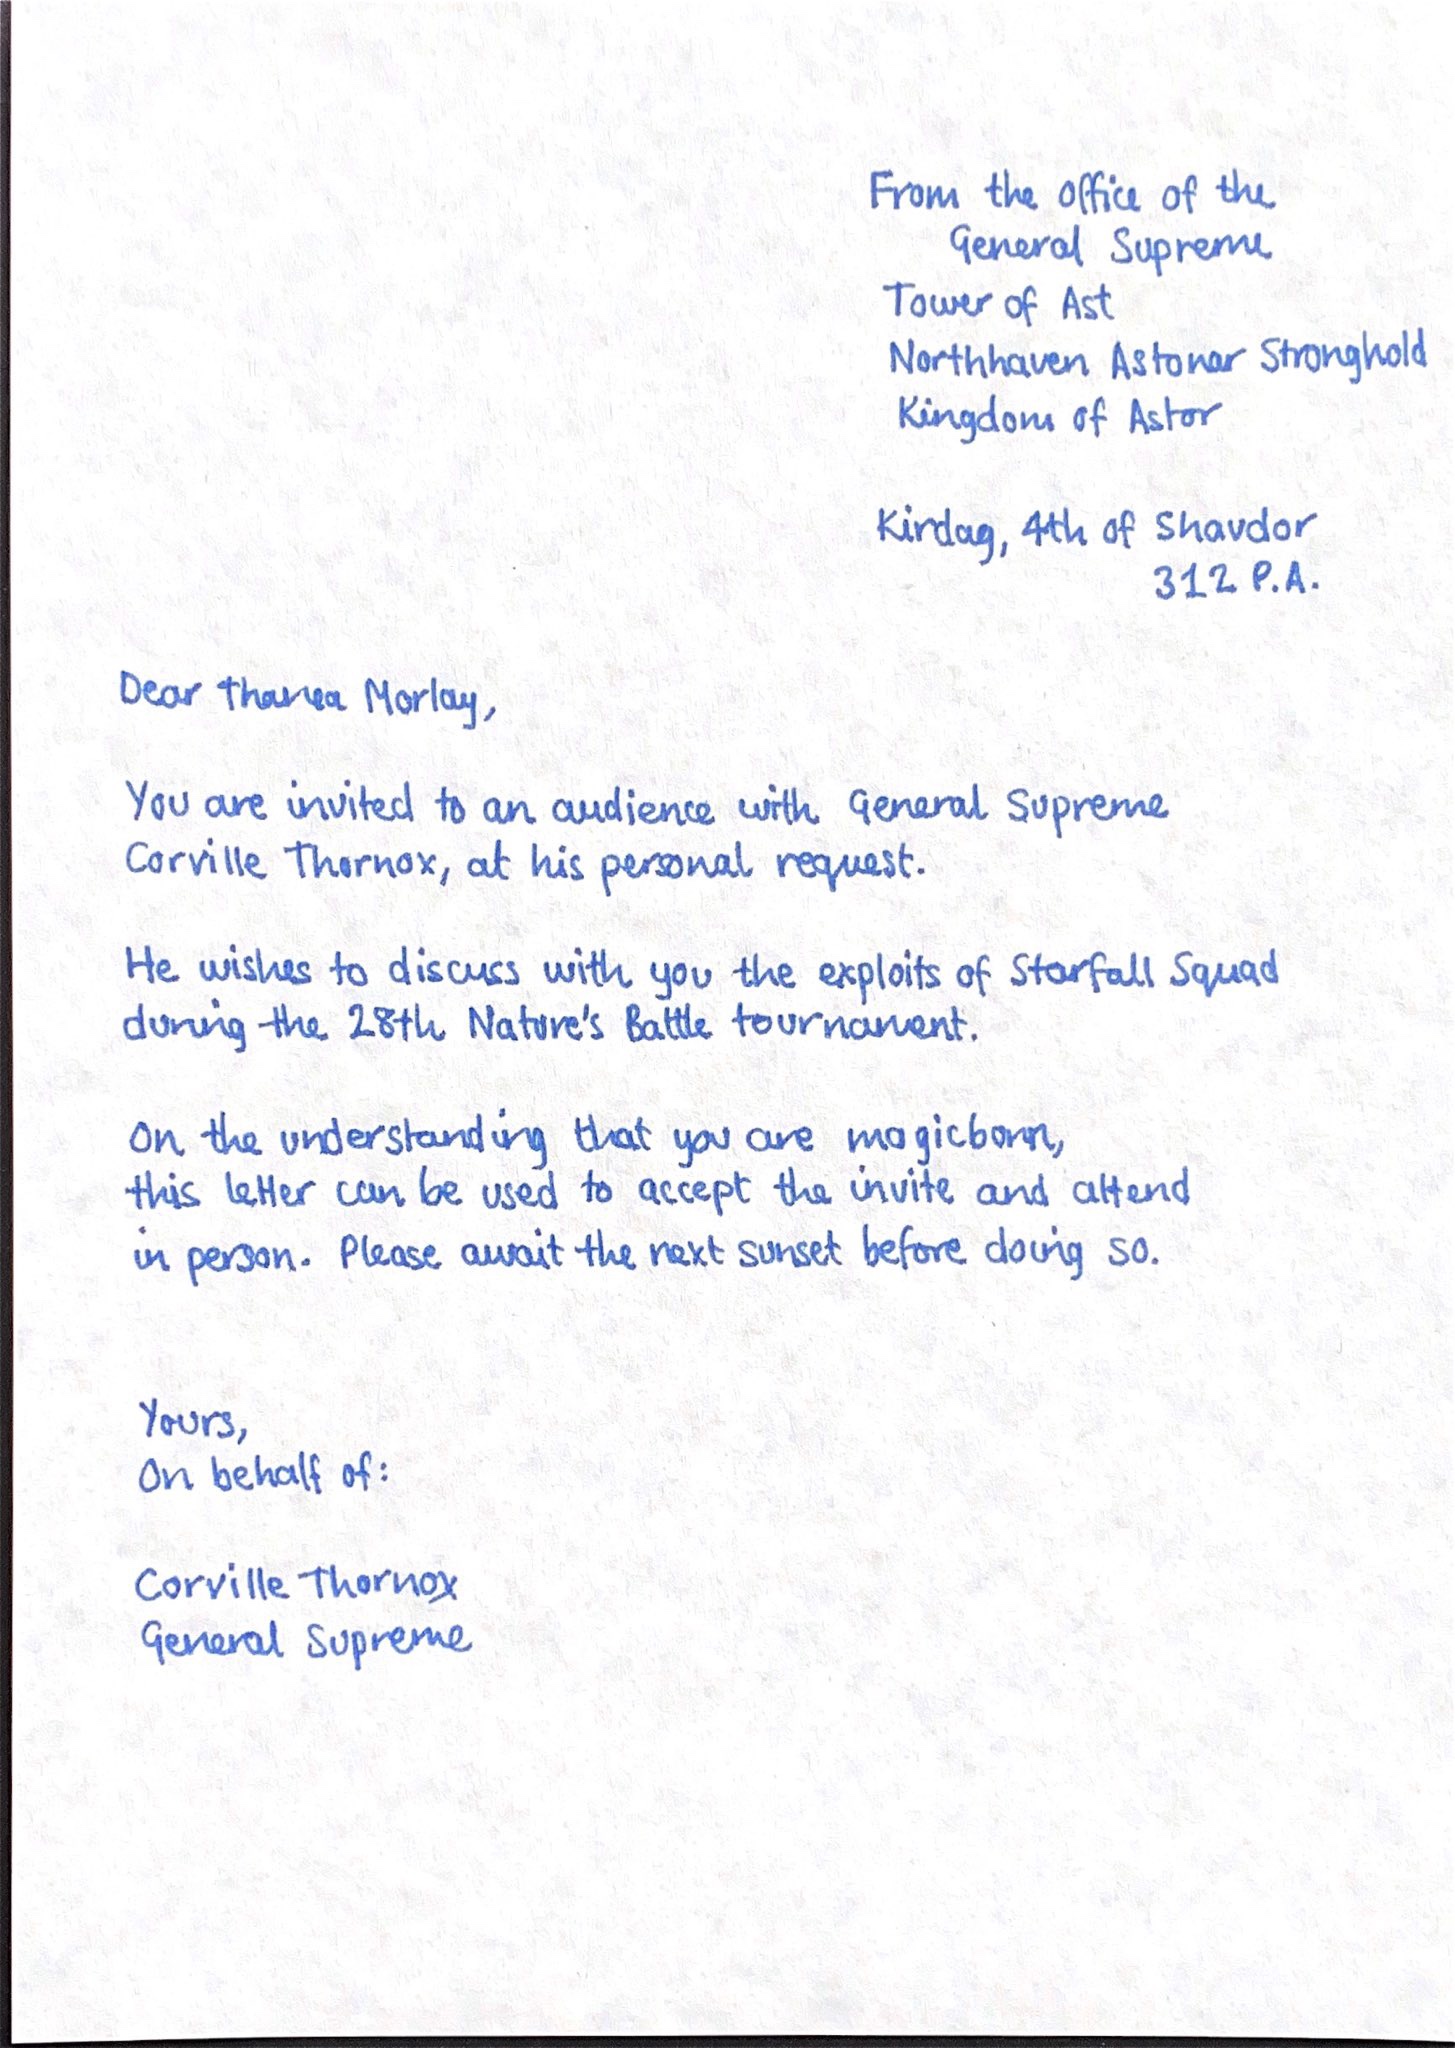 From the office of the
General Supreme
Tower of Ast
Northhaven Astonar Stronghold
Kingdom of Astor
Kirdag, 4th of Shavdor
312 P.A.
Dear Thanea Morlay,
You are invited to an audience with General Supreme
Corville Thornox, at his personal request.
He wishes to discuss with you the exploits of Starfall Squad
during the 28th Nature's Battle tournament.
On the understanding that you are magicborn,
this letter can be used to accept the invite and attend
in person. Please await the next sunset before doing so.
Yours,
On behalf of:
Corville Thornox
General Supreme